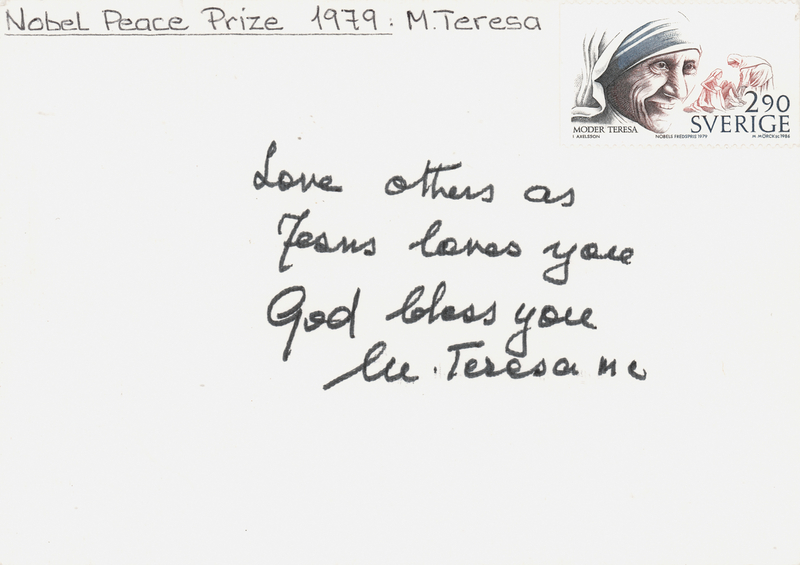 Nobel Peace Prize 1979: M.Teresa
290
MODER TERESA
SVERIGE
I AXELSSON
NOBELS FREDSPRIS 1979
M. MÖRCK sc 1986
Love others as
Jesus loves you
God bless you
M. Teresa mc